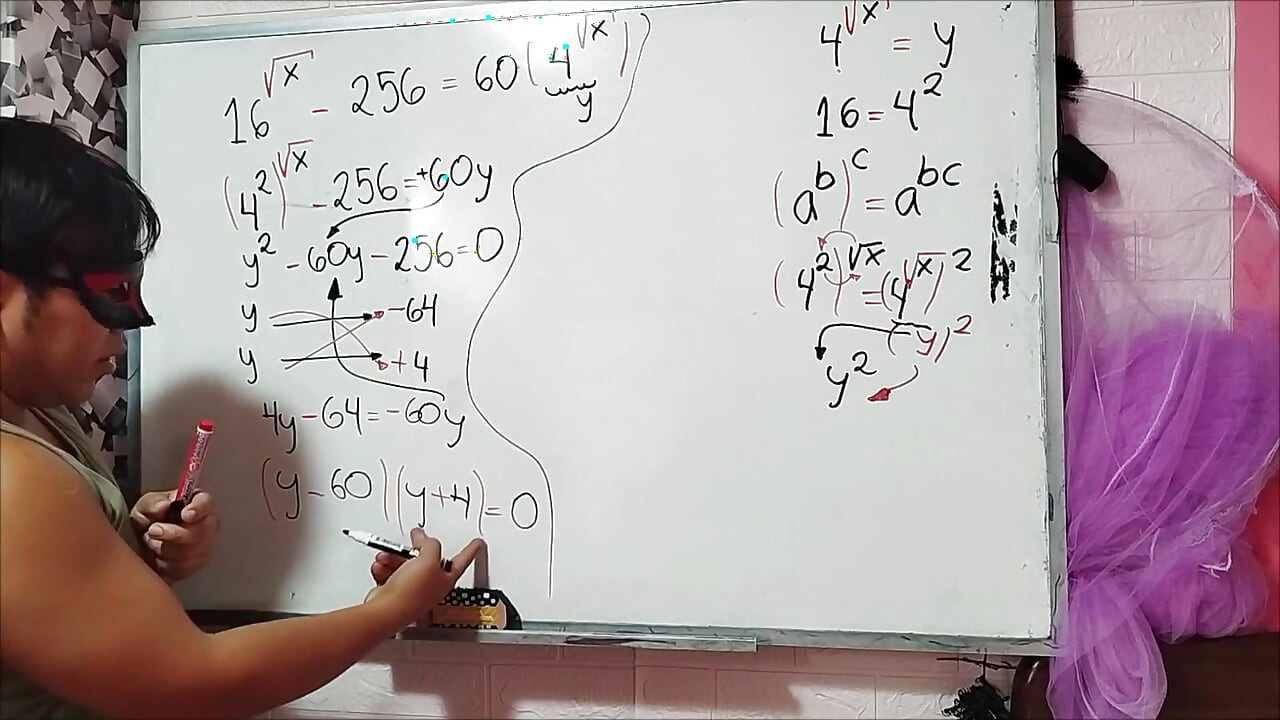 16^√x - 256 = 60(4^√x)
y
(4^2)^√x - 256 = +60y
y^2 - 60y - 256 = 0
y -64
y +4
4y - 64 = -60y
(y - 60)(y + 4) = 0
4^√x = y
16 = 4^2
(a^b)^c = a^bc
(4^2)^√x = (4^√x)^2
(y)^2
y^2